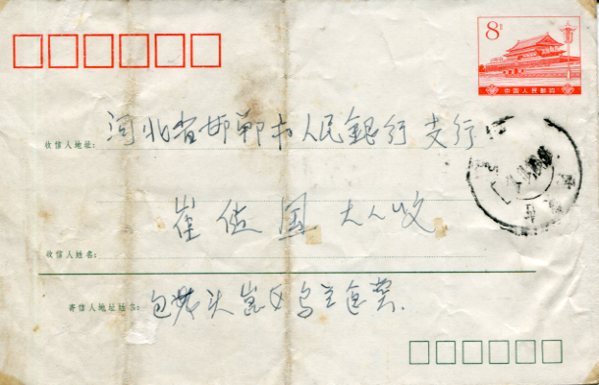 8分
中国人民邮政
收信人地址: 河北省邯郸市人民銀行支行
收信人姓名: 崔佐国大人收
寄信人地址姓名: 包头